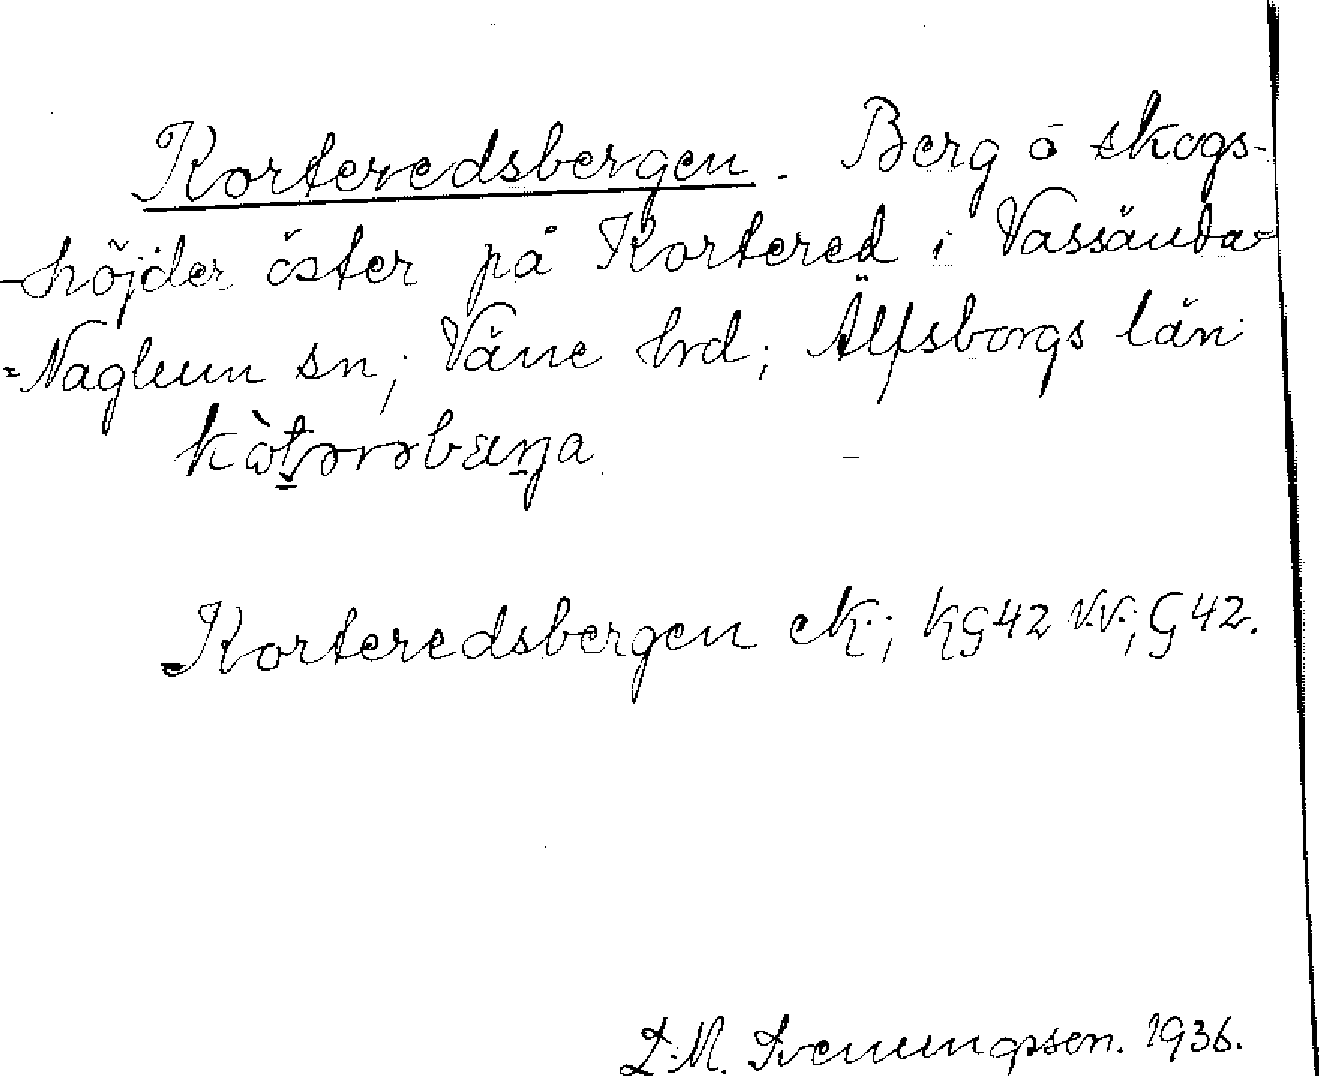 Korteredsbergen. Berg o skogs-
-höjder öster på Kortered i Vassända-
=Naglum sn; Väne hrd; Älfsborgs län
Korteredsbergen ek.; KG42 VV.; G42.
L.M. Svenungsson. 1936.